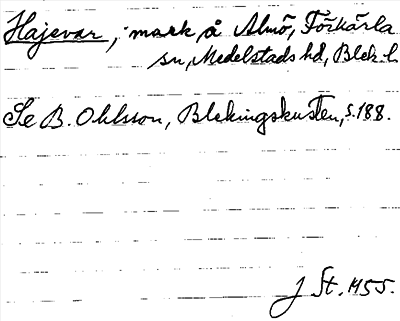 Hajevar, mark å Almö, Förkärla
sn, Medelstads hd, Blek. l.
Se B. Ohlsson, Blekingskusten, s. 188.
J St. 1955.